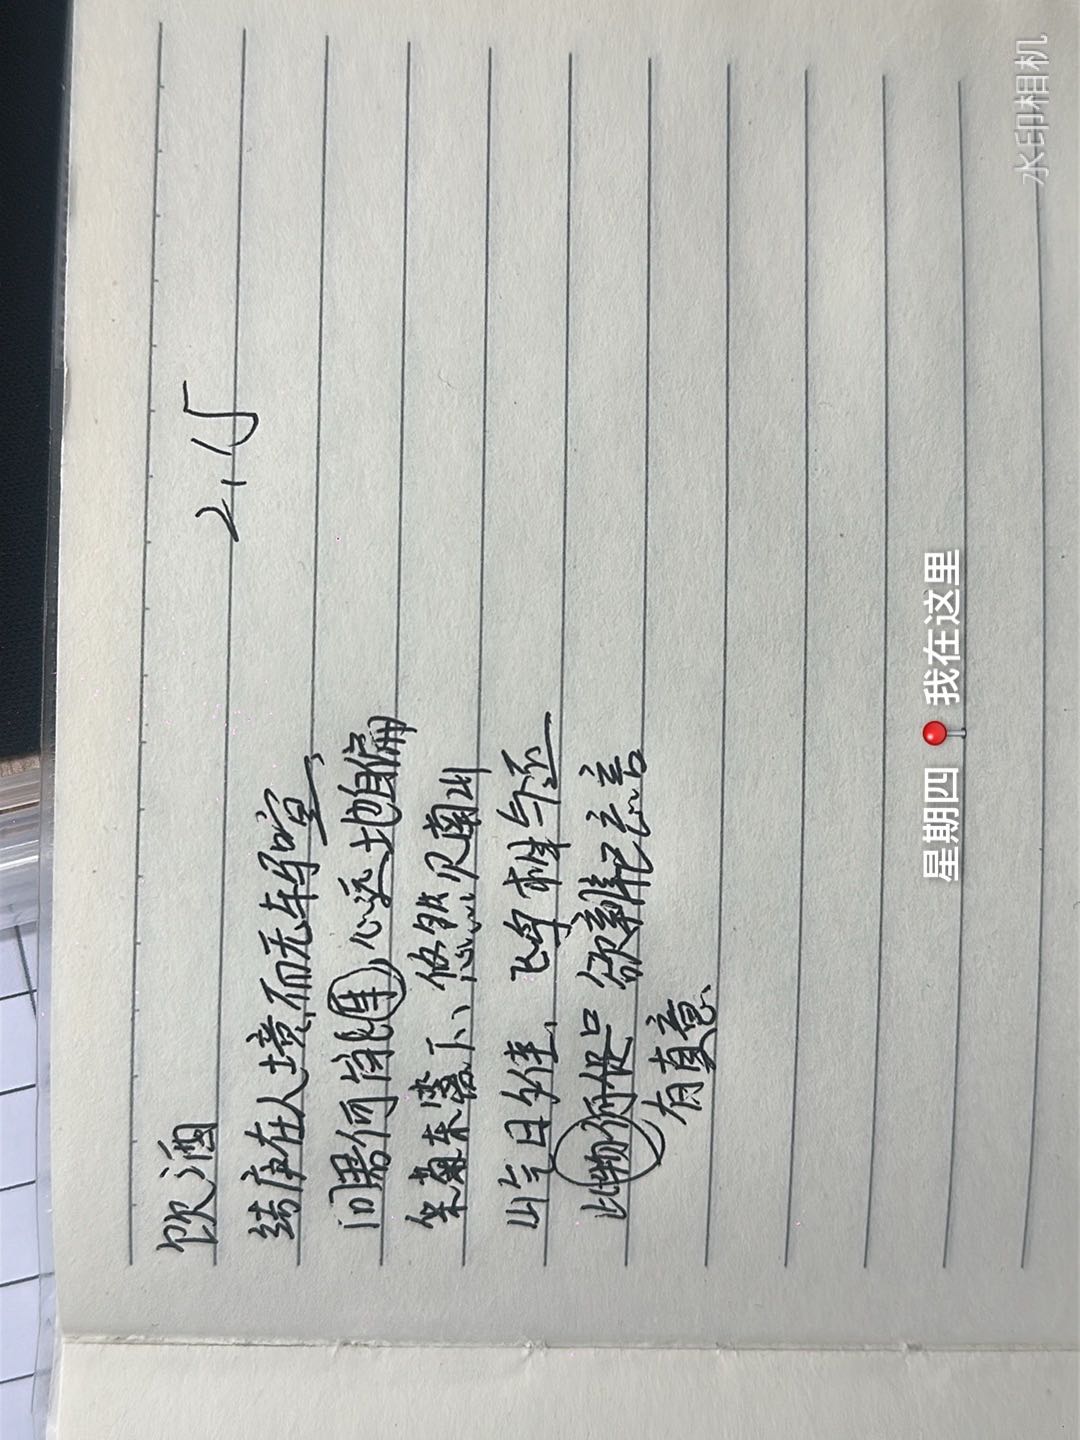 饮酒
2.15
结庐在人境,而无车马喧、
问君何能尔,心远地自偏
采菊东篱下、悠然见南山
山气日夕佳、飞鸟相与还
此物何 欲辨已忘言
有真意、
星期四 📍 我在这里
水印相机